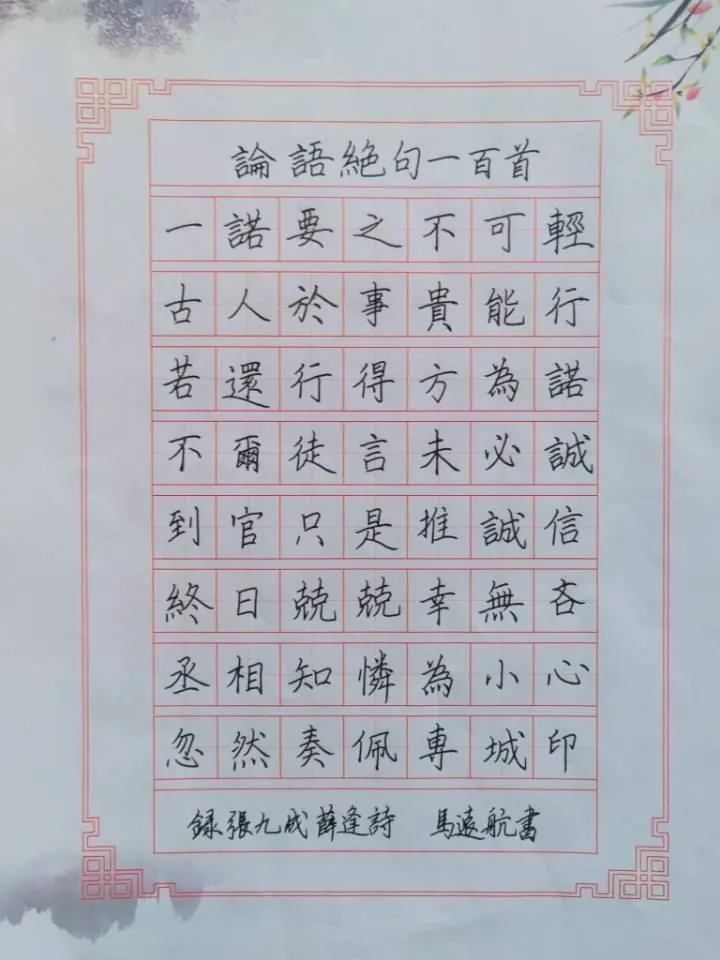 論語絕句一百首
一諾要之不可輕
古人於事貴能行
若還行得方為諾
不爾徒言未必誠
到官只是推誠信
終日兢兢幸無吝
丞相知憐為小心
忽然奏佩專城印
録張九成薛逢詩 馬遠航書